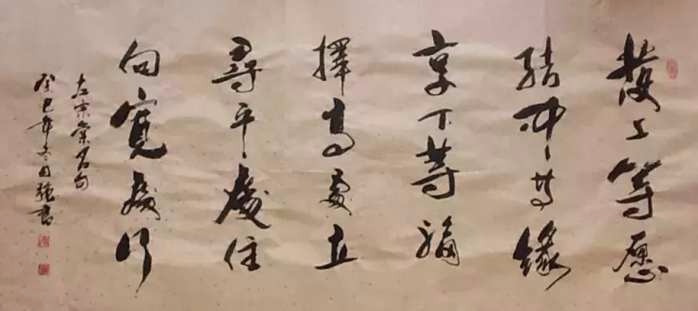 發上等愿
結中等緣
享下等福
擇高處立
尋平處住
向寬處行
左宗棠名句
癸巳年冬書